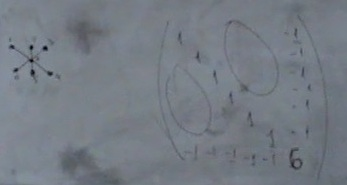 1 -1
1 -1
1 -1
1 -1
1 -1
1 -1
-1 -1 -1 -1 -1 6